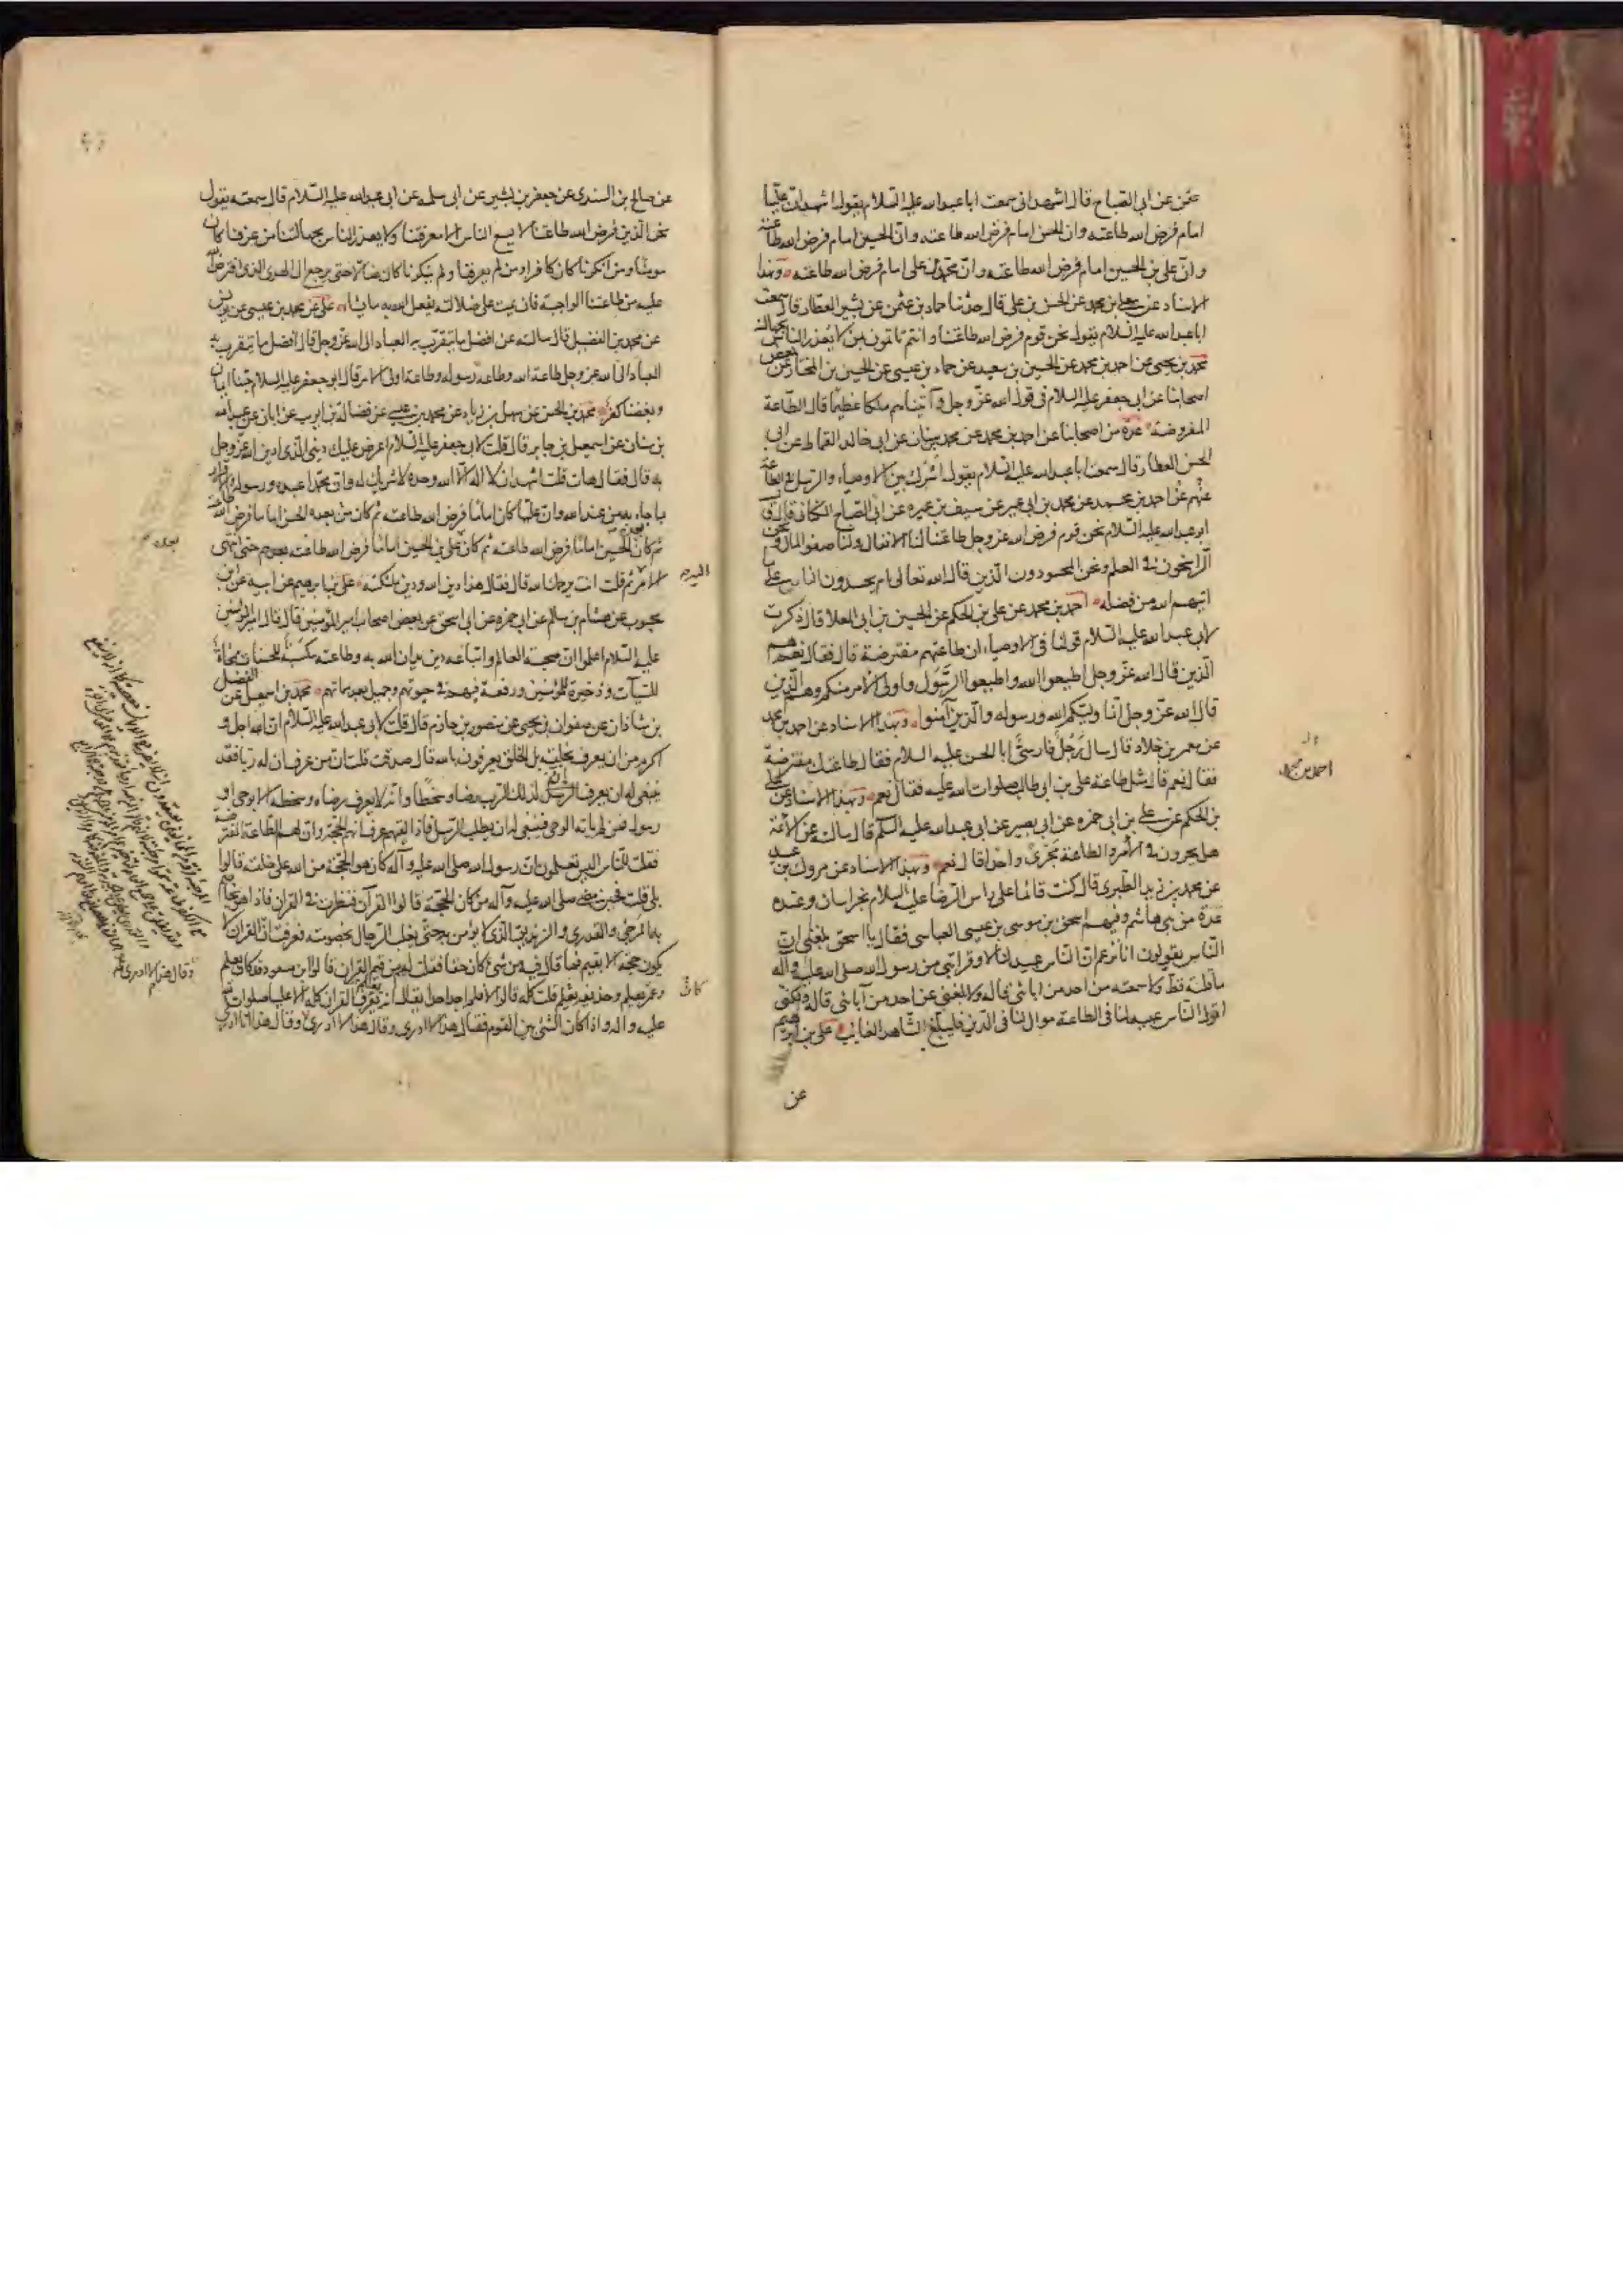 عمن عن ابى الصباح قال اشهد انى سمعت ابا عبد الله عليه السلام يقول اشهد ان عليا
امام فرض الله طاعته وان الحسن امام فرض الله طاعته وان الحسين امام فرض الله طاعته
وان على بن الحسين امام فرض الله طاعته وان محمد بن على امام فرض الله طاعته وبهذا
الاسناد عن معلى بن محمد عن الحسن بن على قال حدثنا حماد بن عثمن عن بشير العطار قال سمعت
ابا عبد الله عليه السلام يقول نحن قوم فرض الله طاعتنا وانتم تاتمون بمن لا يعذر الناس بجهالته
محمد بن يحيى عن احمد بن محمد عن الحسين بن سعيد عن حماد بن عيسى عن الحسين بن المختار عن بعض
اصحابنا عن ابى جعفر عليه السلام فى قول الله عز وجل وآتيناهم ملكا عظيما قال الطاعة
المفروضة عدة من اصحابنا عن احمد بن محمد عن محمد بن سنان عن ابى خالد القماط عن ابى
الحسن العطار قال سمعت ابا عبد الله عليه السلام يقول اشرك بين الاوصياء والرسل فى الطاعة
عنهم عن احمد بن محمد عن محمد بن ابى عمير عن سيف بن عميرة عن ابى الصباح الكنانى قال قال
ابو عبد الله عليه السلام نحن قوم فرض الله عز وجل طاعتنا لنا الانفال ولنا صفو المال ونحن
الراسخون فى العلم ونحن المحسودون الذين قال الله تعالى ام يحسدون الناس على
اتيهم الله من فضله احمد بن محمد عن على بن الحكم عن الحسين بن ابى العلا قال ذكرت
لابى عبد الله عليه السلام قولنا فى الاوصياء ان طاعتهم مفترضة قال فقال نعم هم
الذين قال الله عز وجل اطيعوا الله واطيعوا الرسول واولى الامر منكم وهم الذين
قال الله عز وجل انما وليكم الله ورسوله والذين آمنوا وبهذا الاسناد عن احمد بن محمد
عن معمر بن خلاد قال سال رجل فارسى ابا الحسن عليه السلام فقال طاعتك مفترضة
فقال نعم قال مثل طاعة على بن ابى طالب صلوات الله عليه فقال نعم وبهذا الاسناد عن على
بن الحكم عن على بن ابى حمزه عن ابى بصير عن ابى عبد الله عليه السلم قال سالته عن الائمة
هل يجرون فى الامر والطاعة مجرى واحد قال نعم وبهذا الاسناد عن مروك بن عبيد
عن محمد بن زيد الطبرى قال كنت قائما على راس الرضا عليه السلام بخراسان وعنده
عدة من بنى هاشم وفيهم اسحق بن موسى بن عيسى العباسى فقال يا اسحق بلغنى ان
الناس يقولون انا نزعم ان الناس عبيد لنا لا وقرابتى من رسول الله صلى الله عليه وآله
ما قلته قط ولا سمعته من احد من ابائى قاله ولا بلغنى عن احد من آبائى قاله ولكنى
اقول الناس عبيد لنا فى الطاعة موال لنا فى الدين فليبلغ الشاهد الغائب على بن ابرهيم
عن
احمد بن محمد
عن صالح بن السندى عن جعفر بن بشير عن ابى سلمه عن ابى عبد الله عليه السلام قال سمعته يقول
نحن الذين فرض الله طاعتنا لا يسع الناس الا معرفتنا ولا يعذر الناس بجهالتنا من عرفنا كان
مومنا ومن انكرنا كان كافرا ومن لم يعرفنا ولم ينكرنا كان ضالا حتى يرجع الى الهدى الذى افترض الله
عليه من طاعتنا الواجبة فان يمت على ضلالته يفعل الله به ما يشاء على عن محمد بن عيسى عن يونس
عن محمد بن الفضيل قال سالته عن افضل ما يتقرب به العباد الى الله عز وجل قال افضل ما يتقرب به
العباد الى الله عز وجل طاعة الله وطاعة رسوله وطاعة اولى الامر قال ابو جعفر عليه السلام حبنا ايمان
وبغضنا كفر محمد بن الحسن عن سهل بن زياد عن محمد بن عيسى عن فضالة بن ايوب عن ابان عن عبد الله
بن سنان عن اسمعيل بن جابر قال قلت لابى جعفر عليه السلام اعرض عليك دينى الذى ادين الله عز وجل
به قال فقال هات قلت اشهد ان لا اله الا الله وحده لا شريك له وان محمدا عبده ورسوله والاقرار
بما جاء به من عند الله وان عليا كان اماما فرض الله طاعته ثم كان من بعده الحسن اماما فرض الله طاعته
ثم كان الحسين اماما فرض الله طاعته ثم كان على بن الحسين اماما فرض الله طاعته بعدهم حتى انتهى
الامر ثم قلت انت يرحمك الله قال فقال هذا دين الله ودين ملئكته على بن ابرهيم عن ابيه عن ابن
محبوب عن هشام بن سالم عن ابى حمزه عن ابى اسحق عن بعض اصحاب امير المؤمنين قال قال امير المؤمنين
عليه السلام اعلموا ان صحبة العالم واتباعه دين يدان الله به وطاعته مكسبة للحسنات ممحاة
للسيآت وذخيرة للمؤمنين ورفعة فيهم فى حيوتهم وجميل بعد مماتهم محمد بن اسمعيل عن الفضل
بن شاذان عن صفوان بن يحيى عن منصور بن حازم قال قلت لابى عبد الله عليه السلام ان الله اجل و
اكرم من ان يعرف بخلقه بل الخلق يعرفون بالله قال صدقت قلت ان من عرف ان له ربا فقد
ينبغى له ان يعرف ان لذلك الرب رضا وسخطا وانه لا يعرف رضاه وسخطه الا بوحى او
رسول فمن لم ياته الوحى فينبغى له ان يطلب الرسل فاذا لقيهم عرف انهم الحجة وان لهم الطاعة المفترضة
فقلت للناس اليس تعلمون ان رسول الله صلى الله عليه وآله كان هو الحجة من الله على خلقه قالوا
بلى قلت فحين مضى صلى الله عليه وآله من كان الحجة قالوا القرآن فنظرت فى القران فاذا هو يخاصم
به المرجى والقدرى والزنديق الذى لا يؤمن به حتى يغلب الرجال بخصومته فعرفت ان القران لا
يكون حجة الا بقيم فما قال فيه من شئ كان حقا فقلت لهم من قيم القران قالوا ابن مسعود قد كان يعلم
وعمر يعلم وحذيفه يعلم قلت كله قالوا لا فلم اجد احدا يقال انه يعرف القران كله الا عليا صلوات الله
عليه وآله واذا كان الشئ بين القوم فقال هذا لا ادرى وقال هذا لا ادرى وقال هذا انا ادرى
كان
وقال هذا لا ادرى